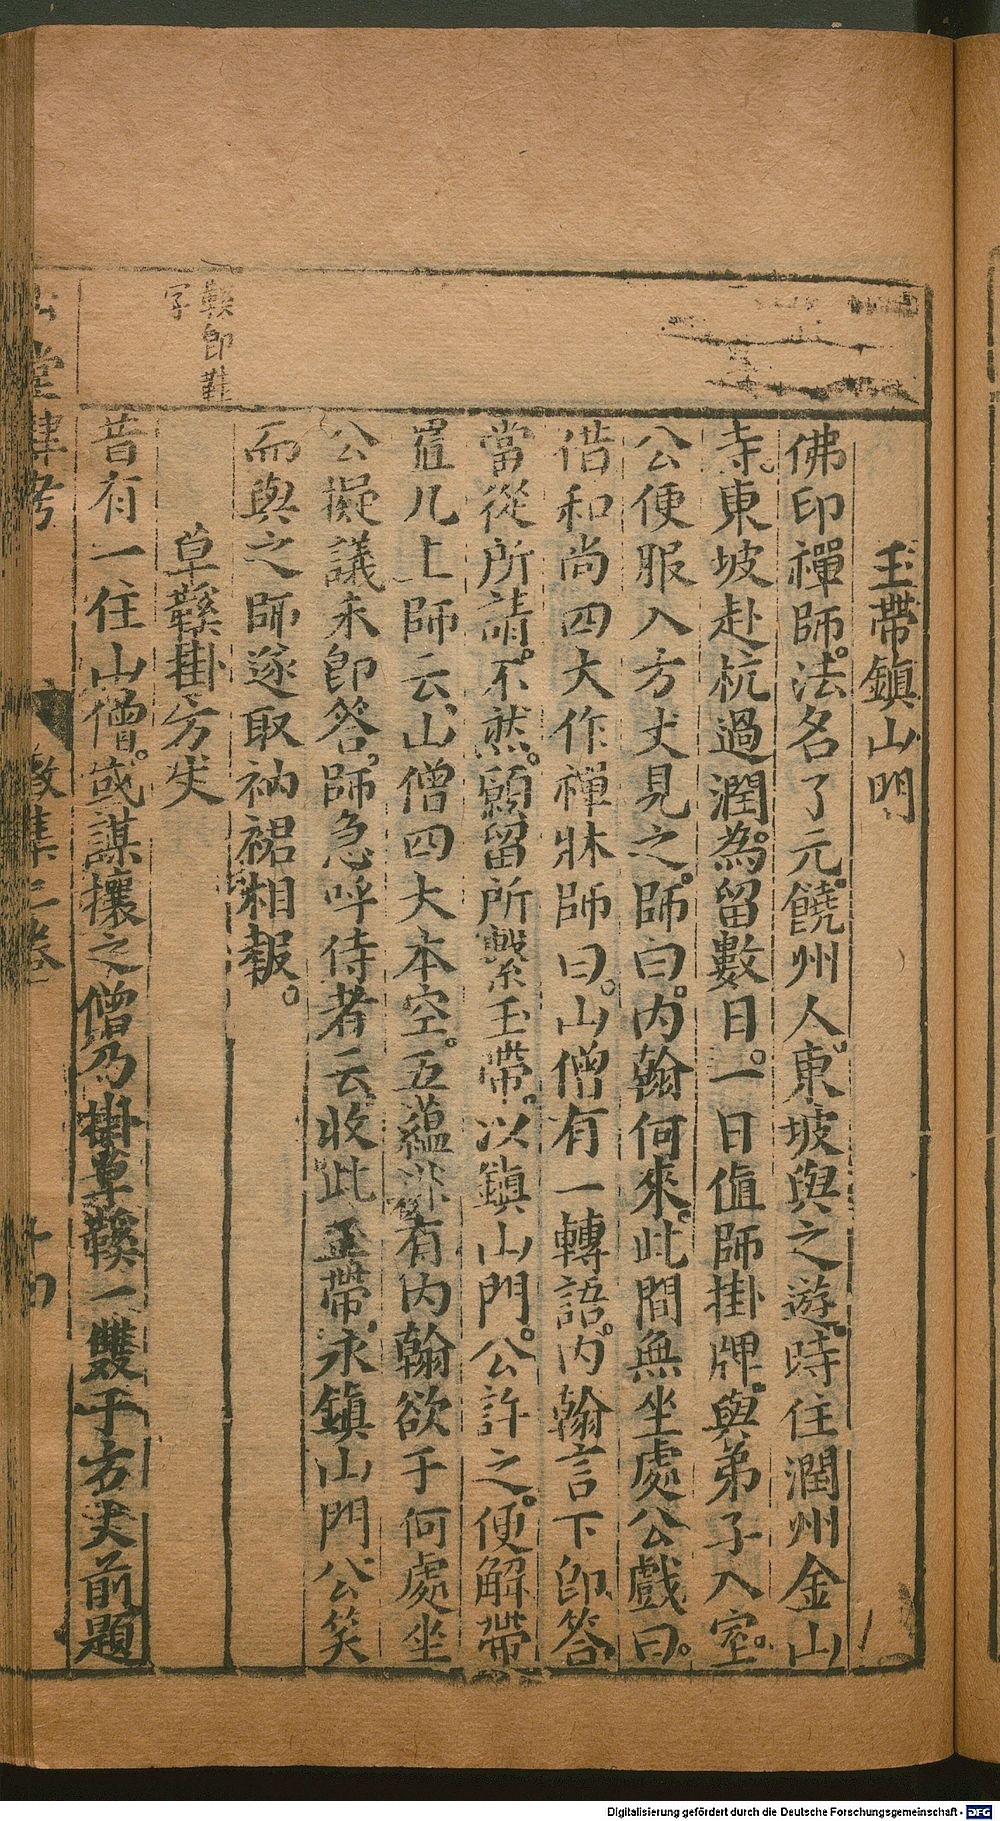 玉帶鎮山門
佛印禪師。法名了元。饒州人。東坡與之遊。時住潤州金山
寺。東坡赴杭過潤。為留數日。一日值師掛牌。與弟子入室。
公便服入方丈見之。師曰。內翰何來。此間無坐處公戲曰。
借和尚四大作禪牀師曰。山僧有一轉語。內翰言下即答。
當從所請。不然。願留所繫玉帶。以鎮山門。公許之。便解帶
置几上師云。山僧四大本空。五蘊非有內翰欲于何處坐
公擬議未即答。師急呼侍者云。收此玉帶。永鎮山門公笑
而與之師遂取衲裙相報。
鞵即鞋
字
草鞵掛方丈
昔有一住山僧。或謀攘之僧乃掛草鞵一雙于方丈前題
堂肆考 徵集二卷 十四
Digitalisierung gefördert durch die Deutsche Forschungsgemeinschaft - DFG